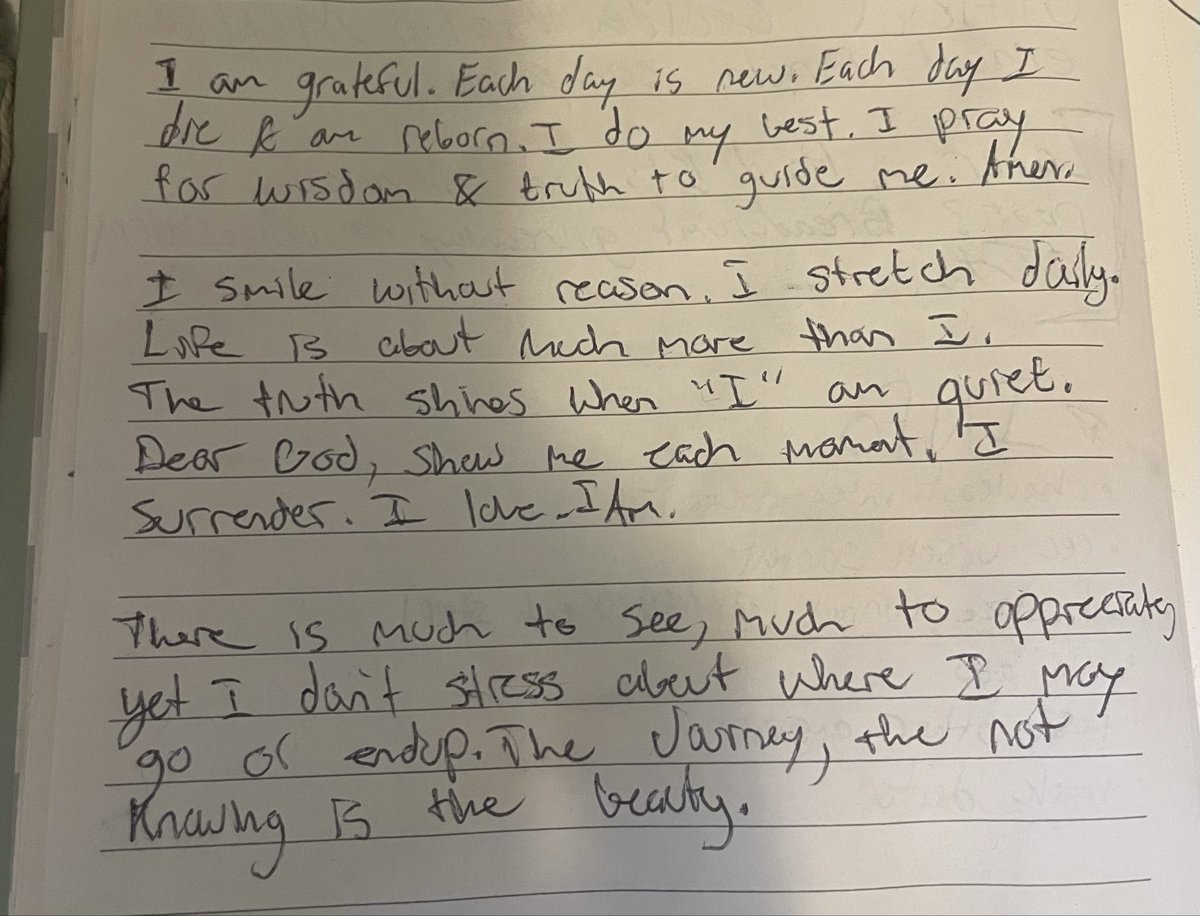 I am grateful. Each day is new. Each day I
die & am reborn. I do my best. I pray
for wisdom & truth to guide me. Amen.
I smile without reason. I stretch daily.
Life is about much more than I.
The truth shines when "I" am quiet.
Dear God, show me each moment. I
surrender. I love. I Am.
There is much to see, much to appreciate,
yet I don't stress about where I may
go or endup. The Journey, the not
knowing is the beauty.